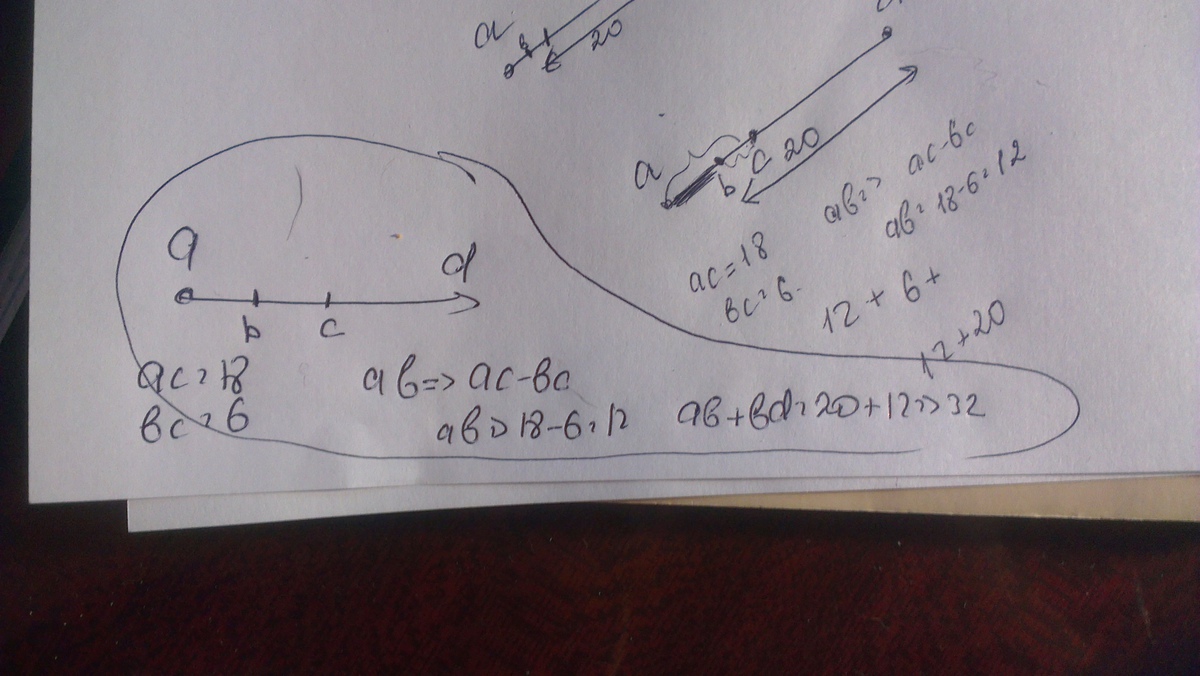 a
20
a
b
c 20
ab => ac-bc
ab = 18-6 = 12
ac = 18
bc = 6
12 + 6 +
12 + 20
a
d
b
c
ac = 18
ab => ac-bc
bc = 6
ab = 18-6 = 12
ab + bd = 20 + 12 => 32